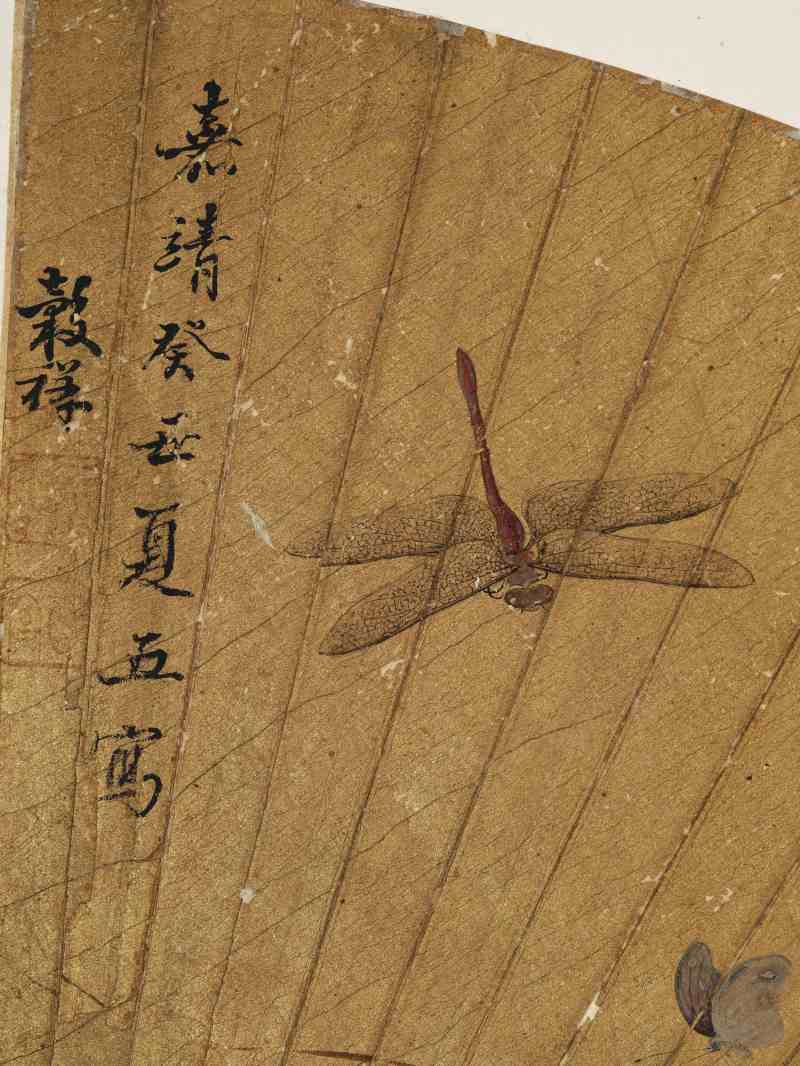 嘉靖癸丑夏五寫
穀祥